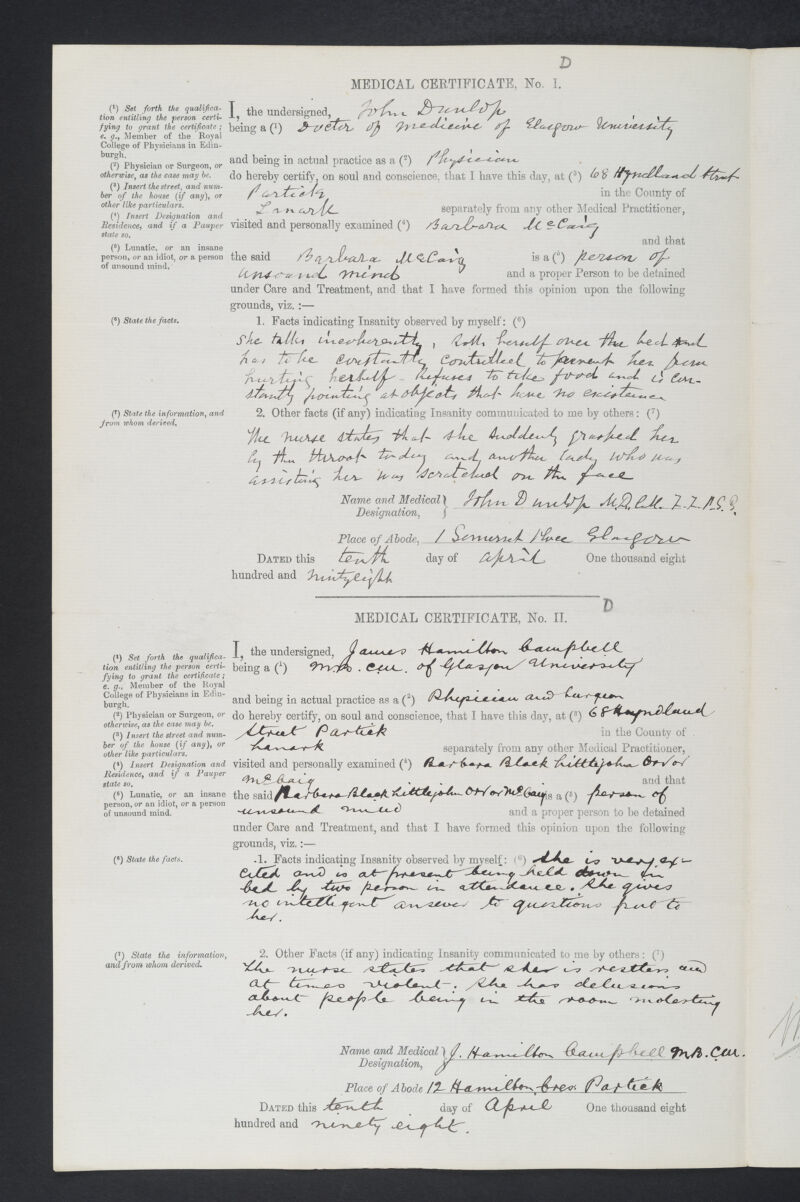 D
MEDICAL CERTIFICATE, No. I.
(¹) Set forth the qualifica-
tion entitling the person certi-
fying to grant the certificate;
e. g., Member of the Royal
College of Physicians in Edin-
burgh.
(²) Physician or Surgeon, or
otherwise, as the case may be.
(³) Insert the street, and num-
ber of the house (if any), or
other like particulars.
(⁴) Insert Designation and
Residence, and if a Pauper
state so.
(⁵) Lunatic, or an insane
person, or an idiot, or a person
of unsound mind.
I, the undersigned, John Dunlop
being a (¹) Doctor of medicine of Glasgow University
and being in actual practice as a (²) Physician
do hereby certify, on soul and conscience, that I have this day, at (³) 68 Hyndland Street
Partick in the County of
Lanark separately from any other Medical Practitioner,
visited and personally examined (⁴) Barbara McCaig
and that
the said Barbara McCaig is a (⁵) person of
unsound mind and a proper Person to be detained
under Care and Treatment, and that I have formed this opinion upon the following
grounds, viz. :—
(⁶) State the facts.
1. Facts indicating Insanity observed by myself: (⁶)
She talks incoherently, rolls herself over the bed and
has to be constantly controlled to prevent her from
hurting herself - Refuses to take food and is con-
stantly pointing at objects that have no existence
(⁷) State the information, and
from whom derived.
2. Other facts (if any) indicating Insanity communicated to me by others: (⁷)
The nurse states that she suddenly grasped her
by the throat today and another lady who was
assisting her was scratched on the face
Name and Medical Designation, } John Dunlop M.D. C.M. F.F.P.S.G.
Place of Abode, 1 Somerset Place Glasgow
DATED this tenth day of april One thousand eight
hundred and nintyeight
D
MEDICAL CERTIFICATE, No. II.
(¹) Set forth the qualifica-
tion entitling the person certi-
fying to grant the certificate;
e. g., Member of the Royal
College of Physicians in Edin-
burgh.
(²) Physician or Surgeon, or
otherwise, as the case may be.
(³) Insert the street and num-
ber of the house (if any), or
other like particulars.
(⁴) Insert Designation and
Residence, and if a Pauper
state so.
(⁵) Lunatic, or an insane
person, or an idiot, or a person
of unsound mind.
I, the undersigned, James Hamilton Campbell
being a (¹) M.B. C.M. of Glasgow University
and being in actual practice as a (²) Physician and Surgeon
do hereby certify, on soul and conscience, that I have this day, at (³) 68 Hyndland
Street Partick in the County of
Lanark separately from any other Medical Practitioner,
visited and personally examined (⁴) Barbara Black Littlejohn Orr or
McCaig and that
the said Barbara Black Littlejohn Orr or McCaig is a (⁵) person of
unsound mind and a proper person to be detained
under Care and Treatment, and that I have formed this opinion upon the following
grounds, viz. :—
(⁶) State the facts.
1. Facts indicating Insanity observed by myself: (⁶) She is very ex-
cited and is at present being held down in
bed by two person in attendance. She gives
no intelligent answer to questions put to
her.
(⁷) State the information,
and from whom derived.
2. Other Facts (if any) indicating Insanity communicated to me by others: (⁷)
The nurse states that she is restless and
at times violent. She has delusions
about people being in the room molesting
her.
Name and Medical Designation, } J. Hamilton Campbell M.B. C.M.
Place of Abode 12 Hamilton Cres. Partick
DATED this tenth day of April One thousand eight
hundred and ninety eight.